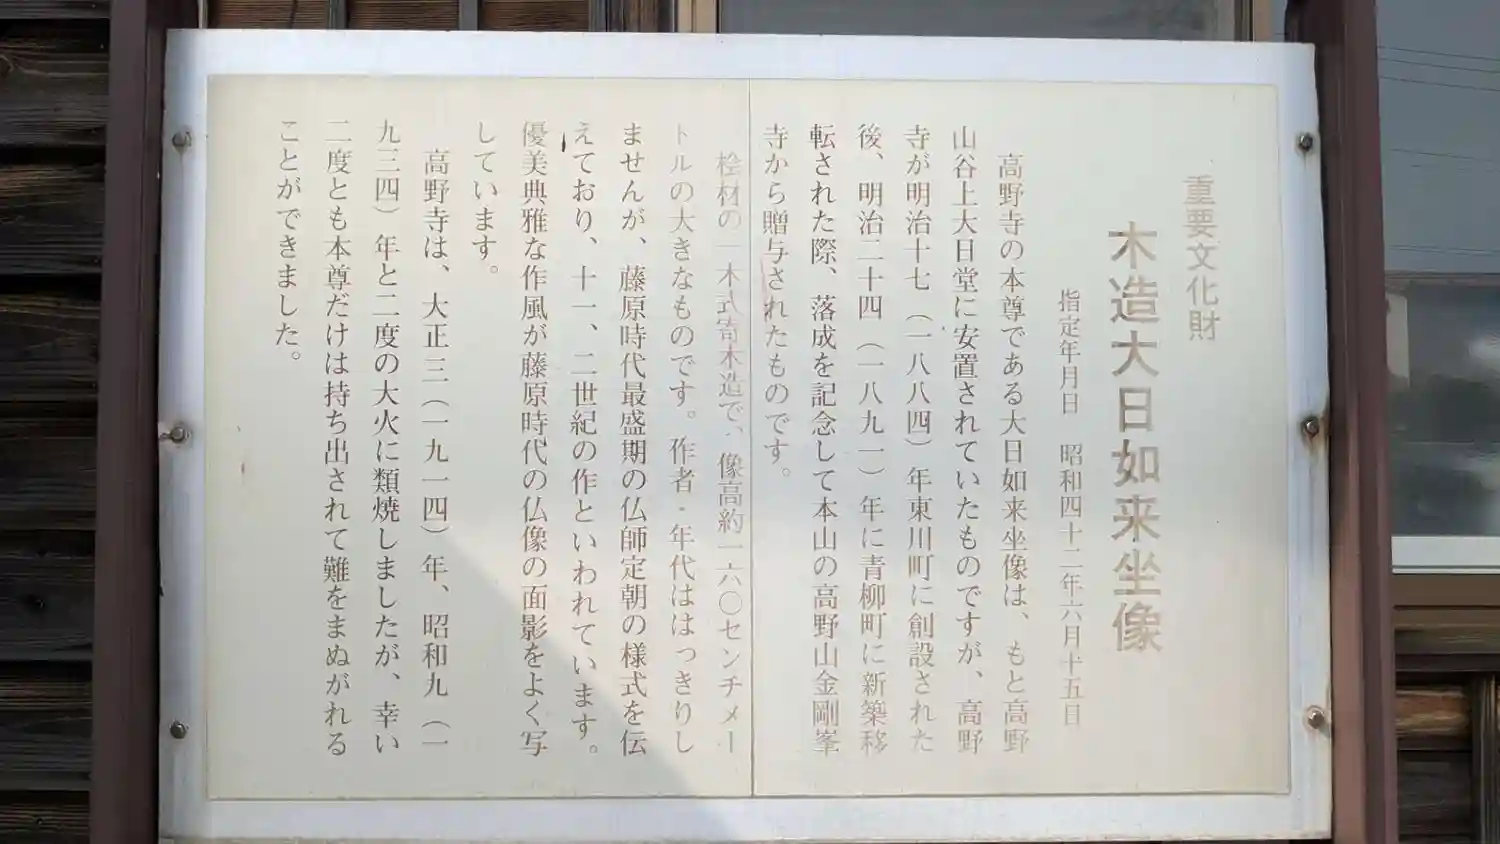 重要文化財
木造大日如来坐像
指定年月日　昭和四十二年六月十五日
高野寺の本尊である大日如来坐像は、もと高野
山谷上大日堂に安置されていたものですが、高野
寺が明治十七（一八八四）年東川町に創設された
後、明治二十四（一八九一）年に青柳町に新築移
転された際、落成を記念して本山の高野山金剛峯
寺から贈与されたものです。
桧材の一木式寄木造で、像高約一六〇センチメー
トルの大きなものです。作者・年代ははっきりし
ませんが、藤原時代最盛期の仏師定朝の様式を伝
えており、十一、二世紀の作といわれています。
優美典雅な作風が藤原時代の仏像の面影をよく写
しています。
高野寺は、大正三（一九一四）年、昭和九（一
九三四）年と二度の大火に類焼しましたが、幸い
二度とも本尊だけは持ち出されて難をまぬがれる
ことができました。